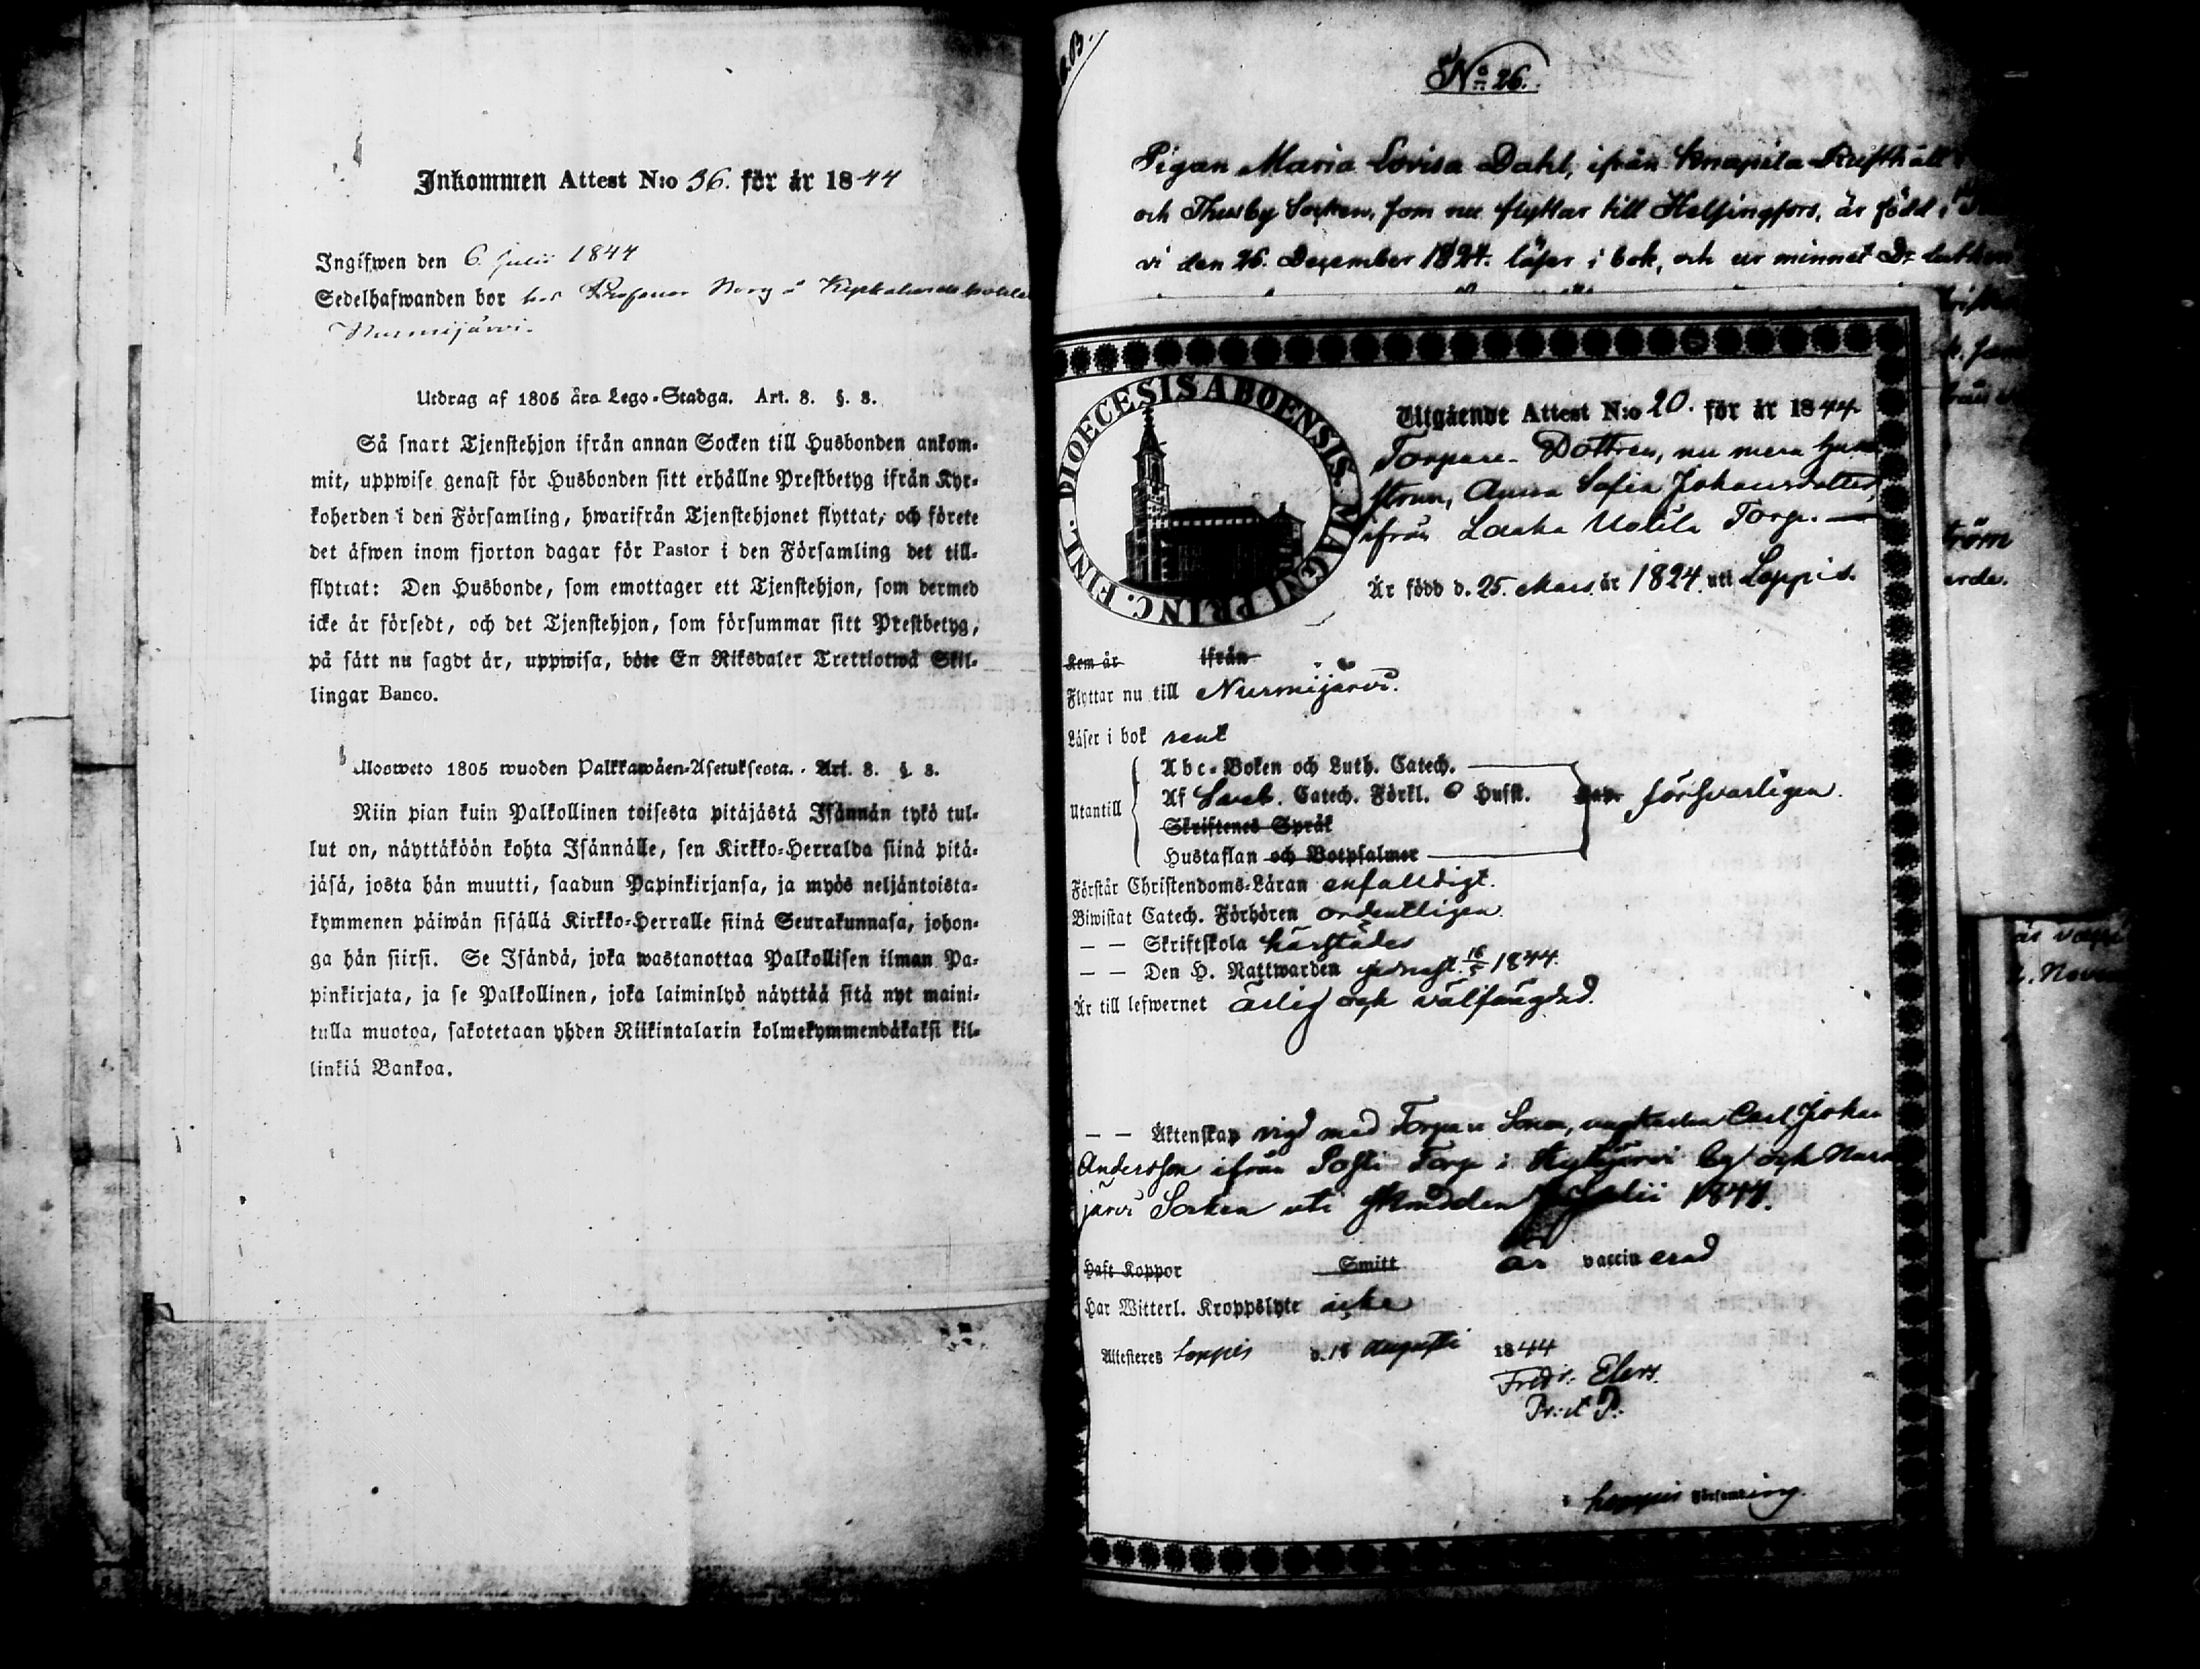 Inkommen Attest N:o 36. för år 1844
Ingifwen den 6. Julii 1844
Sedelhafwanden bor hos Professor
Nurmijärvi.
Utdrag af 1805 åra Lego-Stadga. Art. 8. §. 8.
Så snart Tjenstehjon ifrån annan Socken till Husbonden ankom-
mit, uppwise genast för Husbonden sitt erhållne Prestbetyg ifrån Kyr-
koherden i den Församling, hwarifrån Tjenstehjonet flyttat, och förete
det äfwen inom fjorton dagar för Pastor i den Församling det till-
flyttat: Den Husbonde, som emottager ett Tjenstehjon, som dermed
icke är försedt, och det Tjenstehjon, som försummar sitt Prestbetyg,
på sätt nu sagdt är, uppwisa, böte En Riksdaler Trettiotwå Skil-
lingar Banco.
Ulosweto 1805 wuoden Palkkawäen-Asetuksesta. Art. 8. §. 8.
Niin pian kuin Palkollinen toisesta pitäjästä Isännän tykö tul-
lut on, näyttäköön kohta Isännälle, sen Kirkko-Herralda siinä pitä-
jäsä, josta hän muutti, saadun Papinkirjansa, ja myös neljäntoista-
kymmenen päiwän sisällä Kirkko-Herralle siinä Seurakunnasa, johon-
ga hän siirsi. Se Isändä, joka wastanottaa Palkollisen ilman Pa-
pinkirjata, ja se Palkollinen, joka laiminlyö näyttää sitä nyt maini-
tulla muotoa, sakotetaan yhden Riikintalarin kolmekymmendäkaksi kil-
linkiä Bankoa.
No 26.
Pigan Maria Lovisa Dahl, ifrån Knapila Rusthåll
och Thusby Socken, som nu flyttar till Helsingfors, är född i
vi den 26. December 1824. läser i bok, och ur minnet Dr Luther
DIOECESIS ABOENSIS. MAGNI PRINC. FINL.
Utgående Attest N:o 20. för år 1844
Torpare-Dottren, nu mera Hu
strun, Anna Sofia Johansdotter,
ifrån Laaka Torp.
Är född d. 25. Mars år 1824. uti Loppis.
Kom år ifrån
Flyttar nu till Nurmijärvi.
Läser i bok rent
Abc-Boken och Luth. Catech.
Utantill Af Sveb. Catech. Förkl. o Husst. försvarligen.
Skriftenes Språk
Hustaflan och Botpsalmer
Förstår Christendoms-Läran enfalldigt.
Biwistat Catech. Förhören ordentligen.
— — Skriftskola härstädes
— — Den H. Nattwarden sednast 16/5 1844.
Är till lefwernet ärlig och välfrägdad.
— — Äktenskap vigd med Torpare Sonen, ungkarlen Carl Johan
Andersson ifrån Posti Torp i Kytäjärvi by och Nurmi
järvi Socken uti Julii 1844.
Haft Koppor Smitt är vaccinerad
Har Witterl. Kroppslyte icke
Attesteres Loppis d. 18 Augusti 1844
Fredr. Elers.
Loppis Församling.